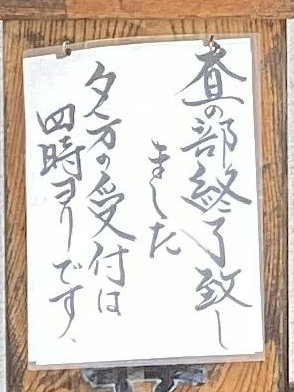 昼の部終了致し
ました
夕方の受付は
四時ヨリです、